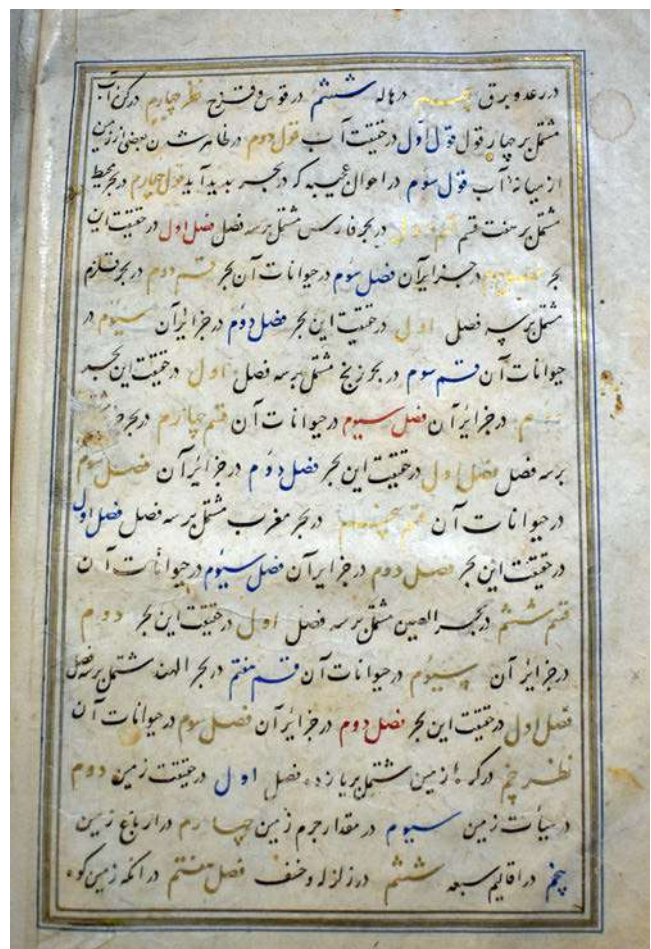 در رعد و برق پنجم در هاله ششم در قوس و قزح نظر چهارم در کرۀ آب
مشتمل بر چهار قول قول اول در حقیقت آب قول دوم در ظاهر شدن بعضی از زمین
از میانۀ آب قول سوم در احوال عجیبه که در بحر پدید آید قول چهارم در بحر محیط
مشتمل بر هفت قسم قسم اول در بحر فارس مشتمل بر سه فصل فصل اول در حقیقت این
بحر فصل دوم در جزایر آن فصل سوم در حیوانات آن بحر قسم دوم در بحر قلزم
مشتمل بر سه فصل اول در حقیقت این بحر فصل دوم در جزایر آن سیوم در
حیوانات آن قسم سوم در بحر زنج مشتمل بر سه فصل اول در حقیقت این بحر
در جزایر آن فصل سیوم در حیوانات آن قسم چهارم در بحر
بر سه فصل فصل اول در حقیقت این بحر فصل دوم در جزایر آن فصل سوم
در حیوانات آن قسم پنجم در بحر مغرب مشتمل بر سه فصل فصل اول
در حقیقت این بحر فصل دوم در جزایر آن فصل سیوم در حیوانات آن
قسم ششم در بحر الصین مشتمل بر سه فصل اول در حقیقت این بحر دوم
در جزایر آن سیوم در حیوانات آن قسم هفتم در بحر الهند مشتمل بر سه فصل
فصل اول در حقیقت این بحر فصل دوم در جزایر آن فصل سوم در حیوانات آن
نظر پنجم در کرۀ زمین مشتمل بر یازده فصل اول در حقیقت زمین دوم
در هیأت زمین سیوم در مقدار جرم زمین چهارم در ارباع زمین
پنجم در اقالیم سبعه ششم در زلزله و خسف فصل هفتم در آنکه زمین کوه